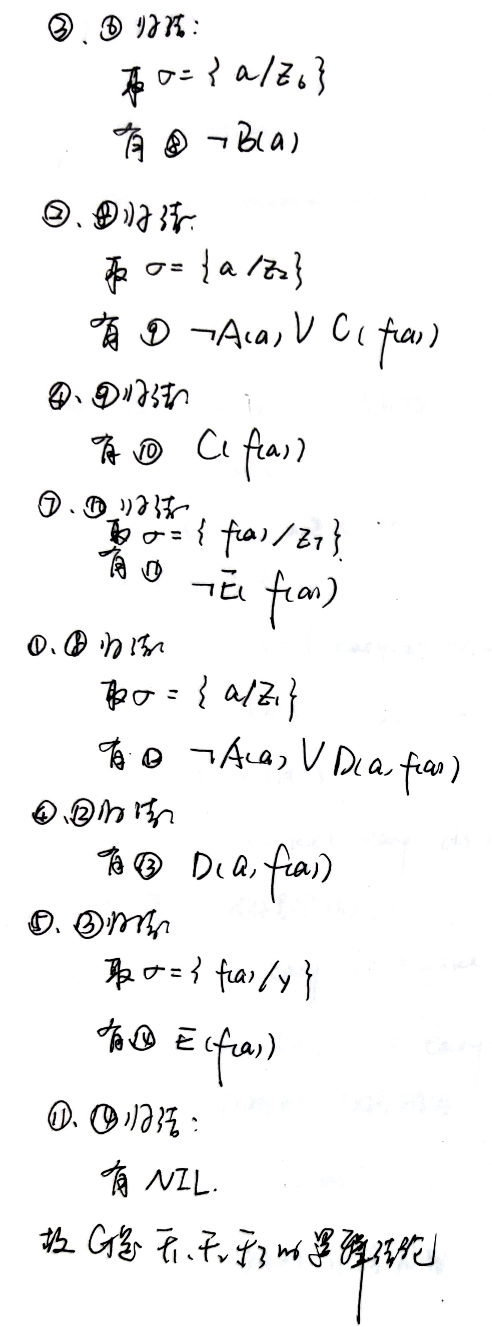 ③、⑥归结:
取 σ={a/z₆}
有 ⑧ ¬B(a)
②、⑧归结:
取 σ={a/z₂}
有 ⑨ ¬A(a)∨C(f(a))
④、⑨归结
有 ⑩ C(f(a))
⑦、⑩归结
取 σ={f(a)/z₇}
有 ⑪
¬E(f(a))
①、⑧归结
取σ={a/z₁}
有 ⑫ ¬A(a)∨D(a,f(a))
④、⑫归结
有⑬ D(a,f(a))
⑤、⑬归结
取σ={f(a)/y}
有⑭ E(f(a))
⑪、⑭归结:
有 NIL.
故 G是 F₁、F₂、F₃的逻辑结论